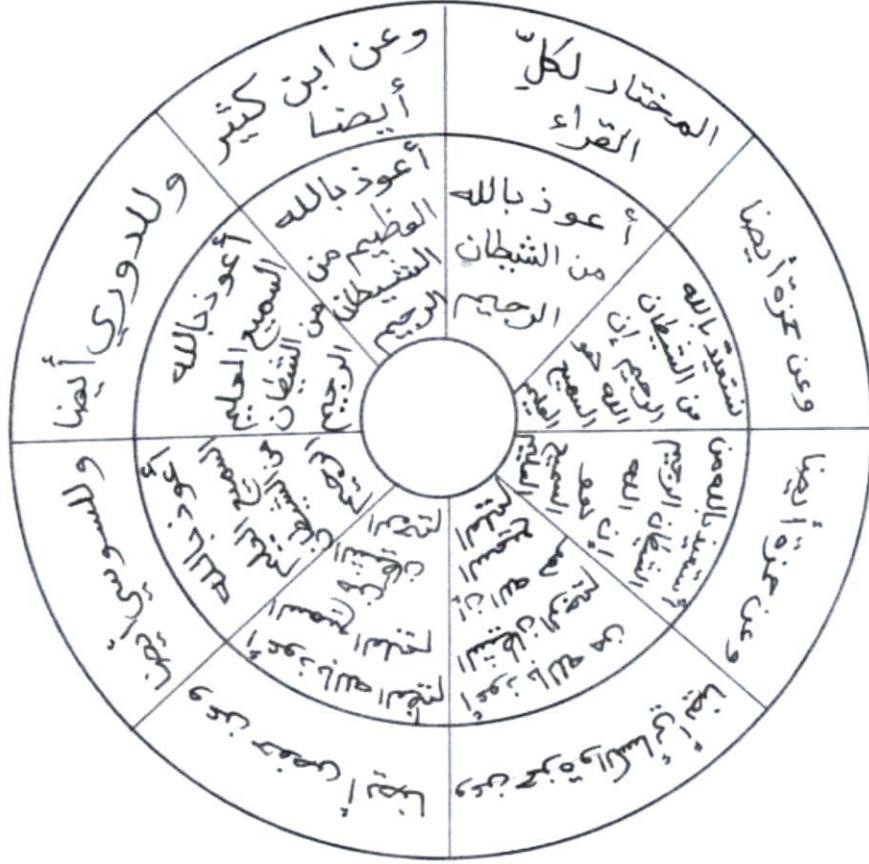 المختار لكلِّ
القراء
أعوذ بالله
من الشيطان
الرجيم
وعن حمزة أيضا
نستعيذ بالله
من الشيطان
الرجيم إن
الله هو
السميع
العليم
وعن حمزة أيضا
أستعيذ بالله من
الشيطان الرجيم
إن الله
هو
السميع
العليم
وعن حمزة والكسائي أيضا
أعوذ بالله من
الشيطان الرجيم
إن الله هو
السميع
العليم
وعن حفص أيضا
أعوذ بالله العظيم
السميع العليم
من
الشيطان
الرجيم
وللسوسي أيضا
أعوذ بالله
السميع العليم
من الشيطان
الرجيم
وللدوري أيضا
أعوذ بالله
السميع العليم
من الشيطان
الرجيم
وعن ابن كثير
أيضا
أعوذ بالله
العظيم من
الشيطان
الرجيم